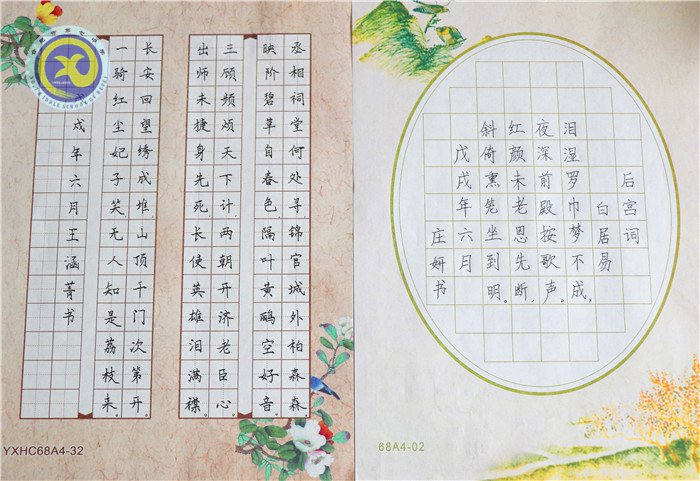 丞相祠堂何处寻锦官城外柏森森。
映阶碧草自春色隔叶黄鹂空好音。
三顾频烦天下计,两朝开济老臣心
出师未捷身先死,长使英雄泪满襟。
长安回望绣成堆,山顶千门次第开
一骑红尘妃子笑无人知是荔枝来。
戌年六月王涵菁书
YXHC68A4-32
后宫词
白居易
泪湿罗巾梦不成,
夜深前殿按歌声。
红颜未老恩先断,
斜倚熏笼坐到明。
戊戌年六月
庄妍书
68A4-02